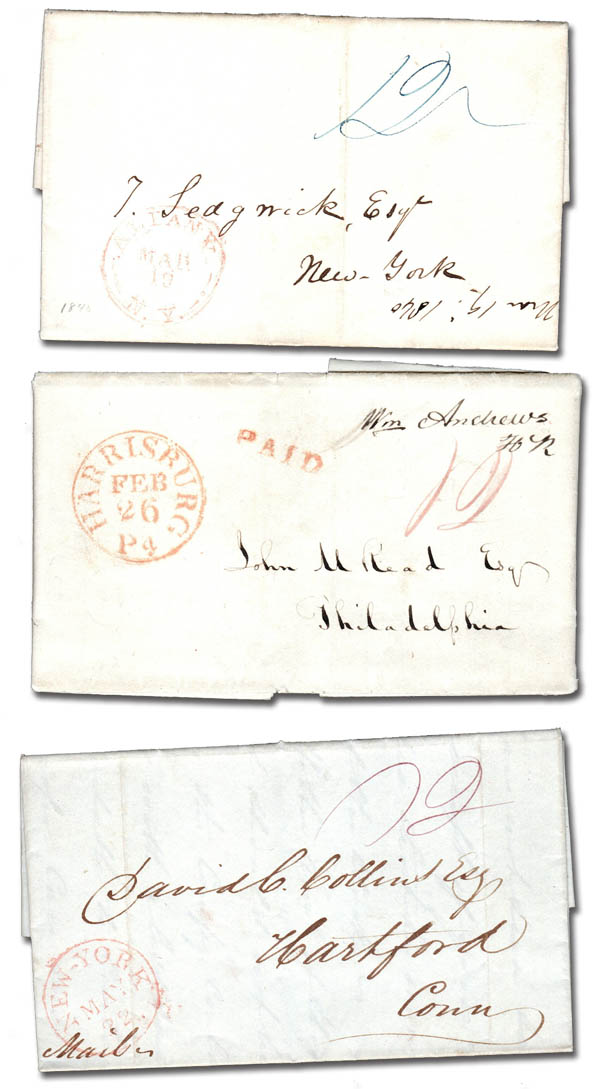 12
T. Sedgwick, Esqr
New-York
ALBANY
MAR
19
N.Y.
1840
Mar 19. 1840
Wm Andrews
HR
PAID
HARRISBURG
FEB
26
Pa
12
John M Read Esq
Philadelphia
12
David C. Collins Esq
Hartford
Conn
NEW-YORK
MAY
Mail